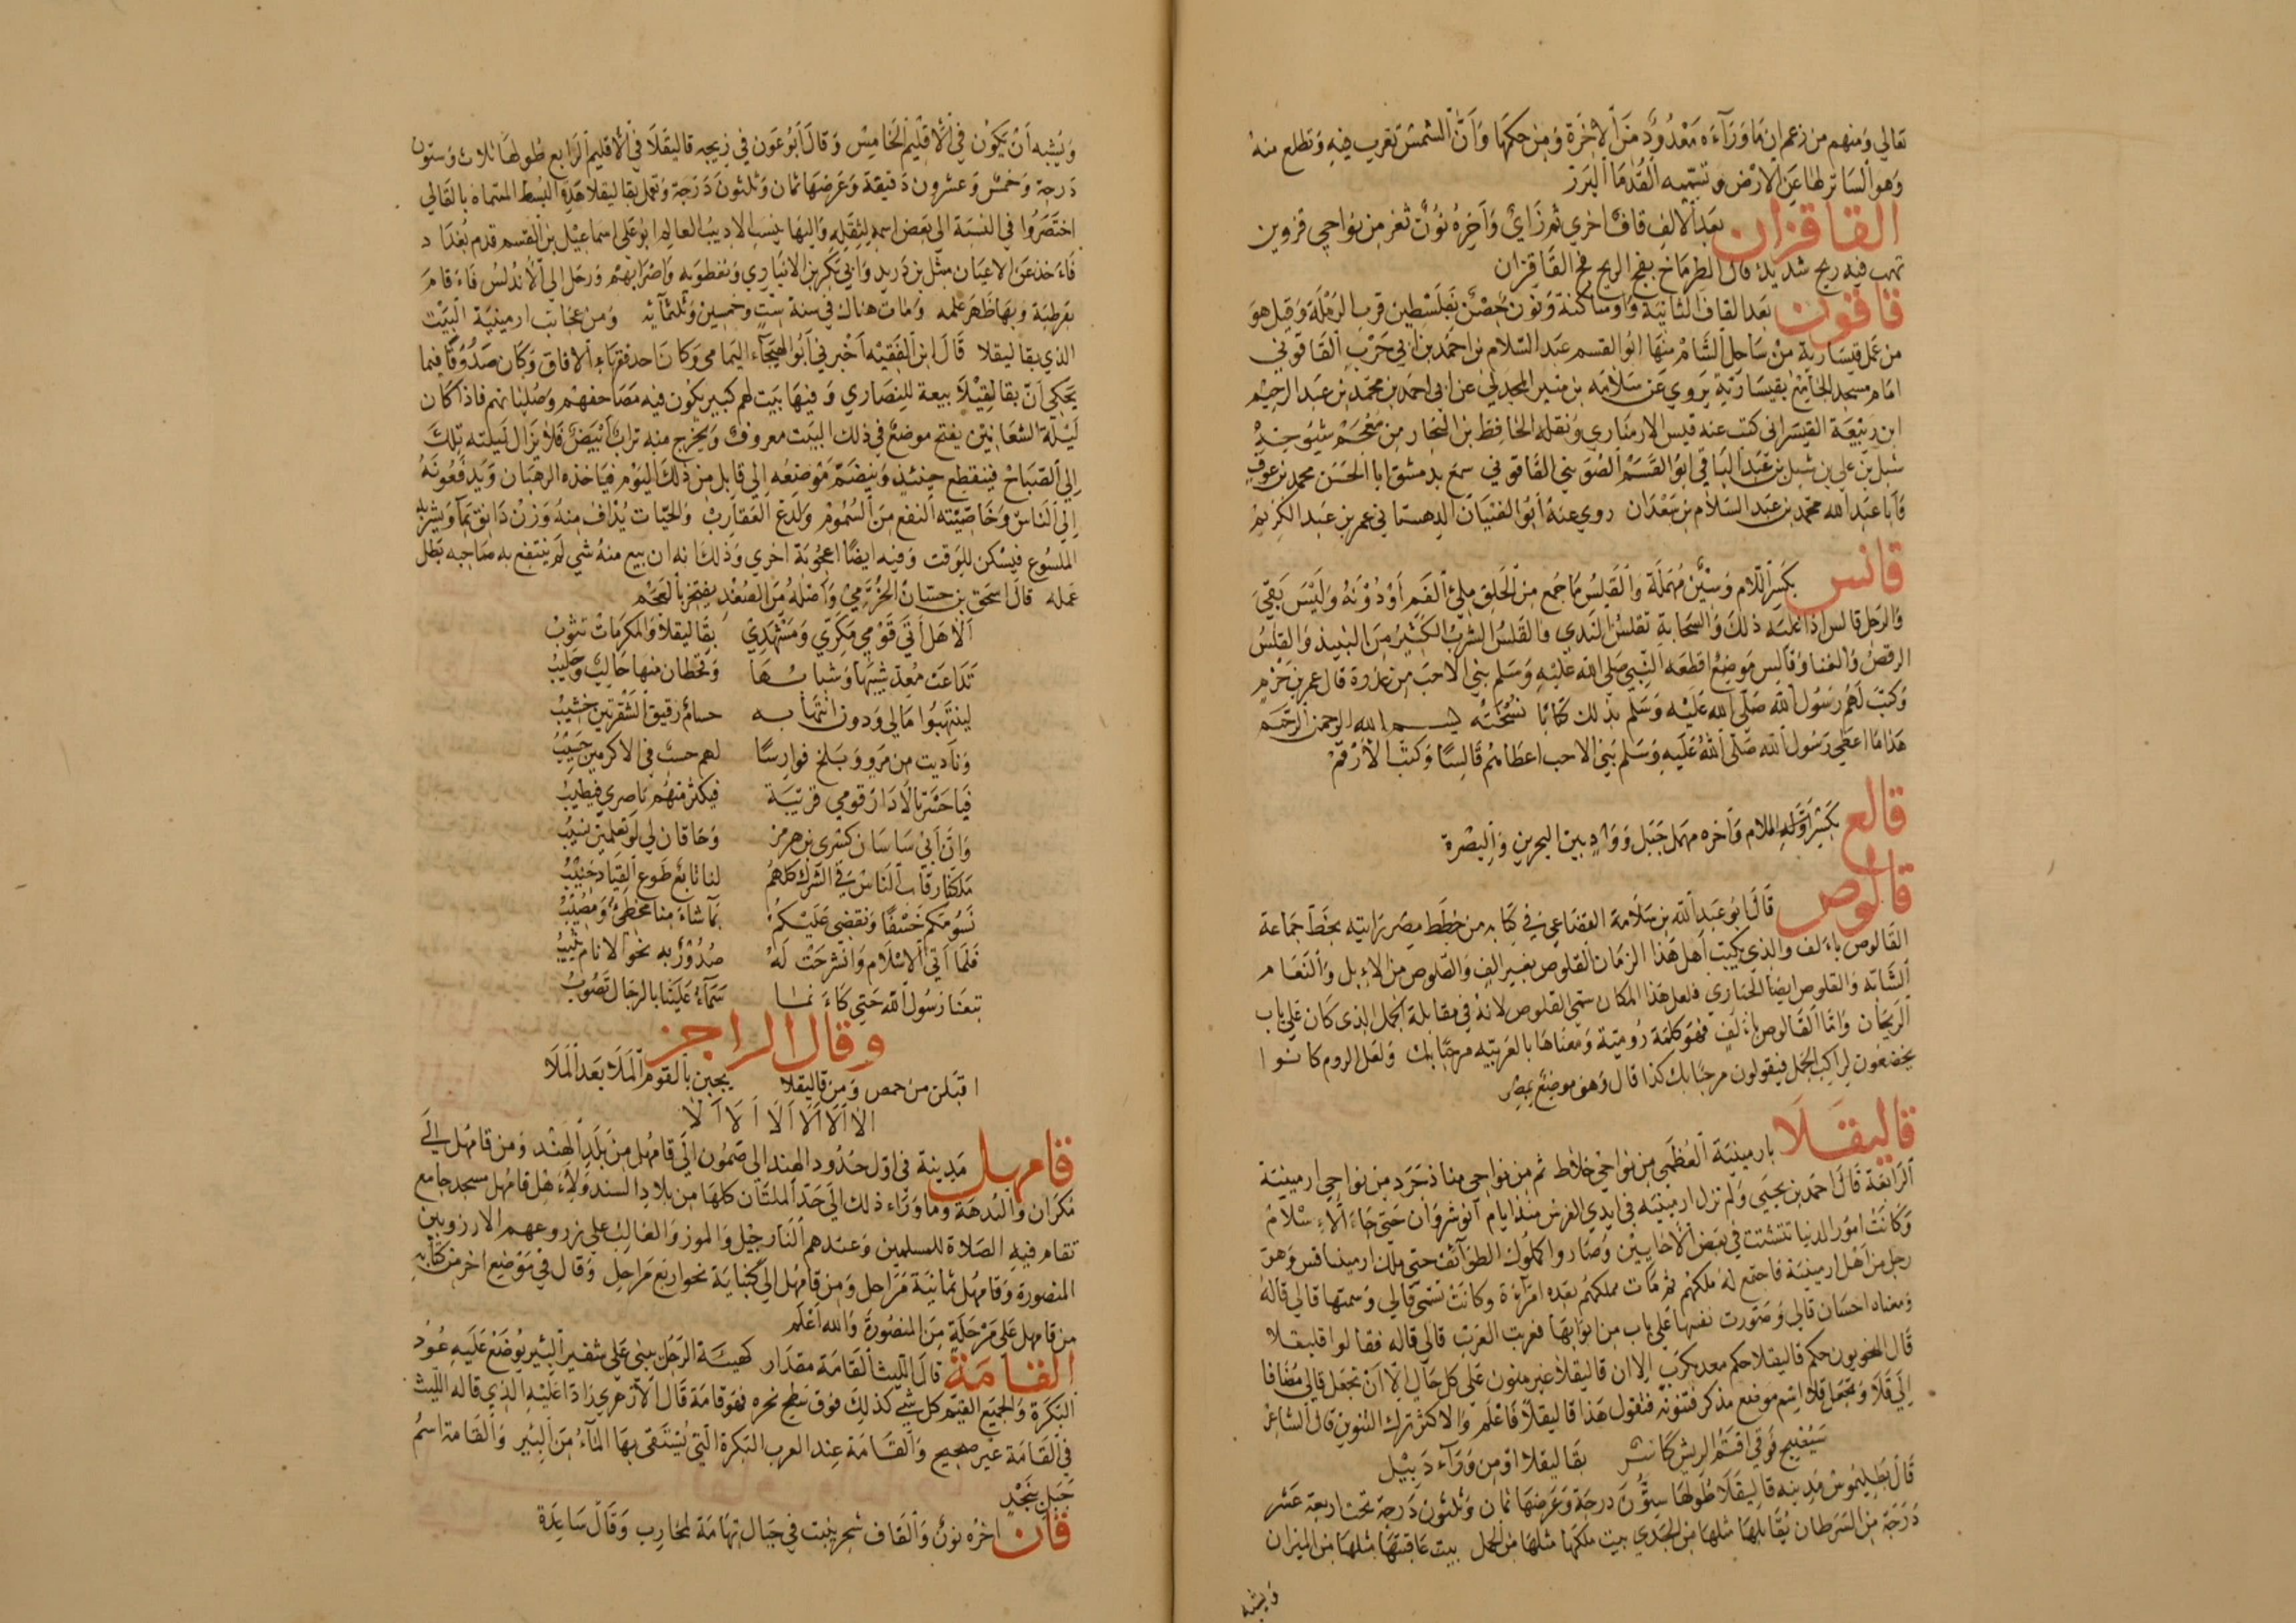 تعالي ومنهم من زعم ان ما ورآءه معدود من الاخرة ومن حكمها وان الشمس تغرب فيه وتطلع منه
وهو الساتر لها عن الارض وتسميه القدما البرز
القاقزان بعد الالف قاف اخري ثم زاي وآخره نون ثغر من نواحي قزوين
تهب فيه ريح شديدة قال الطرماخ بفج الريح فج القاقزان
قاقون بعد القاف الثانية واو ساكنة ونون حصن بفلسطين قرب الرملة وقيل هو
من عمل قيسارية من ساحل الشام منها ابو القسم عبد السلام بن احمد بن ابي حرب القاقوني
امام مسجد الجامع بقيسارية يروي عن سلامه بن منير المجدلي عن ابي احمد بن محمد بن عبد الرحيم
ابن ربيعة القيسراني كتب عنه قيس الارمنازي ونقله الحافظ بن النجار من معجم شيوخه
شبل بن علي بن شبل بن عبد الباقي ابو القسم الصويني القاقوني سمع بدمشق ابا الحسن محمد بن عوف
وابا عبد الله محمد بن عبد السلام بن سعدان روي عنه ابو الفتيان الدهستاني عمر بن عبد الكريم
قالس بكسر اللام وسين مهملة والقلس ما جمع من الحلق ملئ الفم او دونه وليس بقئ
والرجل قالس اذا غلبه ذلك والسحابة تقلس الندي والقلس الشرب الكثير من النبيذ والقلس
الرقص والغنا وقالس موضع اقطعه النبي صلي الله عليه وسلم بني الاحب من عذرة قال عمر بن حزم
وكتب لهم رسول الله صلي الله عليه وسلم بذلك كتابا نسخته بسم الله الرحمن الرحيم
هذا ما اعطي رسول الله صلي الله عليه وسلم بني الاحب اعطاهم قالسا وكتب الارقم
قالع بكسر اوله اللام وآخره مهمل جبل وواد بين البحرين والبصرة
قالوص قال ابو عبد الله بن سلامة القضاعي في كتابه من خطط مصر رايته بخط جماعة
القالوص بالف والذي يكتب اهل هذا الزمان القلوص بغير الف والقلوص من الابل والنعام
الشابه والقلوص ايضا الحباري فلعل هذا المكان سمي القلوص لانه في مقابلة الجمل الذي كان علي باب
الريحان واما القالوص بالف فهو كلمة رومية ومعناها بالعربيه مرحبا بك ولعل الروم كانوا
يخضعون لراكب الجمل فيقولون مرحبا بك كذا قال وهو موضع بمصر
قاليقلا بارمينية العظمي من نواحي خلاط ثم من نواحي منازجرد من نواحي ارمينية
الرابعة قال احمد بن يحيي ولم تزل ارمينية في ايدي الفرس منذ ايام انوشروان حتي جاء الاسلام
وكانت امور الدنيا تتشتت في بعض الاحايين وصاروا كملوك الطوآئف حتي ملك ارمينياقس وهو
رجل من اهل ارمينية فاجتمع له ملكهم ثم مات فملكتهم بعده امرأة وكانت تسمي قالي وسمتها قالي قاله
ومعناه احسان قالي وصورت نفسها علي باب من ابوابها فعربت العرب قالي قاله فقالوا قاليقلا
قال النحويون حكم قاليقلا حكم معد يكرب الا ان قاليقلا غير منون علي كل حال الا ان تجعل قالي مضافا
الي قلا وتجعل قلا اسم موضع مذكر فتنونه فتقول هذا قاليقلا فاعلم والاكثر ترك التنوين قال الشاعر
سيصبح فوقي اقتم الريش كاسر بقاليقلا او من ورآء دبيل
قال بطليموس مدينه قاليقلا طولها ستون درجة وعرضها ثمان وثلثون درجة تحت اربعة عشر
درجة من السرطان يقابلها مثلها من الجدي بيت ملكها مثلها من الحمل بيت عاقبتها مثلها من الميزان
ويشبه
ويشبه ان يكون في الاقليم الخامس وقال ابو عون في زيجه قاليقلا في الاقليم الرابع طولها ثلاث وستون
درجة وخمس وعشرون دقيقة وعرضها ثمان وثلثون درجة وتعمل بقاليقلا هذه البسط المسماه بالقالي
اختصروا في النسبة الي بعض اسمه لثقله واليها ينسب الاديب العالم ابو علي اسماعيل بن القسم قدم بغداد
فاءخذ عن الاعيان مثل بن دريد وابي بكر بن الانباري ونفطويه واضرابهم ورحل الي الاندلس فاءقام
بقرطبة وبها ظهر علمه ومات هناك في سنة ست وخمسين وثلثمائه ومن عجائب ارمينية البيت
الذي بقاليقلا قال ابن الفقيه اخبرني ابو الهيجآء اليمامي وكان احد فقهاء الافاق وكان صدوقا فيما
يحكي ان بقاليقلا بيعة للنصاري وفيها بيت لهم كبير يكون فيه مصاحفهم وصلبانهم فاذا كان
ليلة الشعانين يفتح موضع في ذلك البيت معروف ويخرج منه تراب ابيض فلا يزال ليلته تلك
الي الصباح فينقطع حينئذ وينضم موضعه الي قابل من ذلك اليوم فياخذه الرهبان ويدفعونه
الي الناس وخاصيته النفع من السموم ولدغ العقارب والحيات يذاف منه وزن دانق بمآ ويشربه
الملسوع فيسكن للوقت وفيه ايضا اعجوبة اخري وذلك انه ان بيع منه شي لم ينتفع به صاحبه بطل
عمله قال اسحق بن حسان الخرمي واصله من الصغد يفتخر بالعجم
الا هل اتي قومي مكري ومشهدي بقاليقلا والمكرمات تثوب
تداعت معد شيبها وشبابها وقحطان منها حالب وحليب
لينتهبوا مالي ودون انتهابه حسام رقيق الشفرتين خشيب
وناديت من مرو وبلخ فوارسا لهم حسب في الاكرمين حسيب
فيا حسرتا لا دار قومي قريبة فيكثر منهم ناصري فيطيب
وان ابي ساسان كسري بن هرمز وخاقان لي لو تعلمين نسيب
ملكنا رقاب الناس في الشرك كلهم لنا تابع طوع القياد جنيب
نسومكم خسفا ونقضي عليكم بمآ شاء منا مخطئ ومصيب
فلما اتي الاسلام وانشرحت له صدور به نحو الانام تنيب
تبعنا رسول الله حتي كاءنما سمآء علينا بالرجال تصوب
وقال الراجز
اقبلن من حمص ومن قاليقلا يجبن بالقوم الملا بعد الملا
الا الا الا الا الا الا
قامهل مدينة في اول حدود الهند الي صيمون الي قامهل من بلد الهند ومن قامهل الي
مكران والبدهة وما وراء ذلك الي حد الملتان كلها من بلاد السند ولاءهل قامهل مسجد جامع
تقام فيه الصلاة للمسلمين وعندهم النارجيل والموز والغالب علي زروعهم الارز وبين
المنصورة وقامهل ثمانية مراحل ومن قامهل الي كنباية نحو اربع مراحل وقال في موضع اخر من كتابه
من قامهل علي مرحلة من المنصورة والله اعلم
القامة قال الليث القامة مقدار كهيئة الرجل يبني علي شفير البئير يوضع عليه عود
البكرة والجميع القيم كل شئ كذلك فوق سطح نحوه فهو قامة قال الازهري رادا عليه الذي قاله الليث
في القامة غير صحيح والقامة عند العرب البكرة التي يستقي بها المآء من البئير والقامة اسم
جبل بنجد
قان اخره نون والقاف شجر ينبت في جبال تهامة لمحارب وقال ساعدة